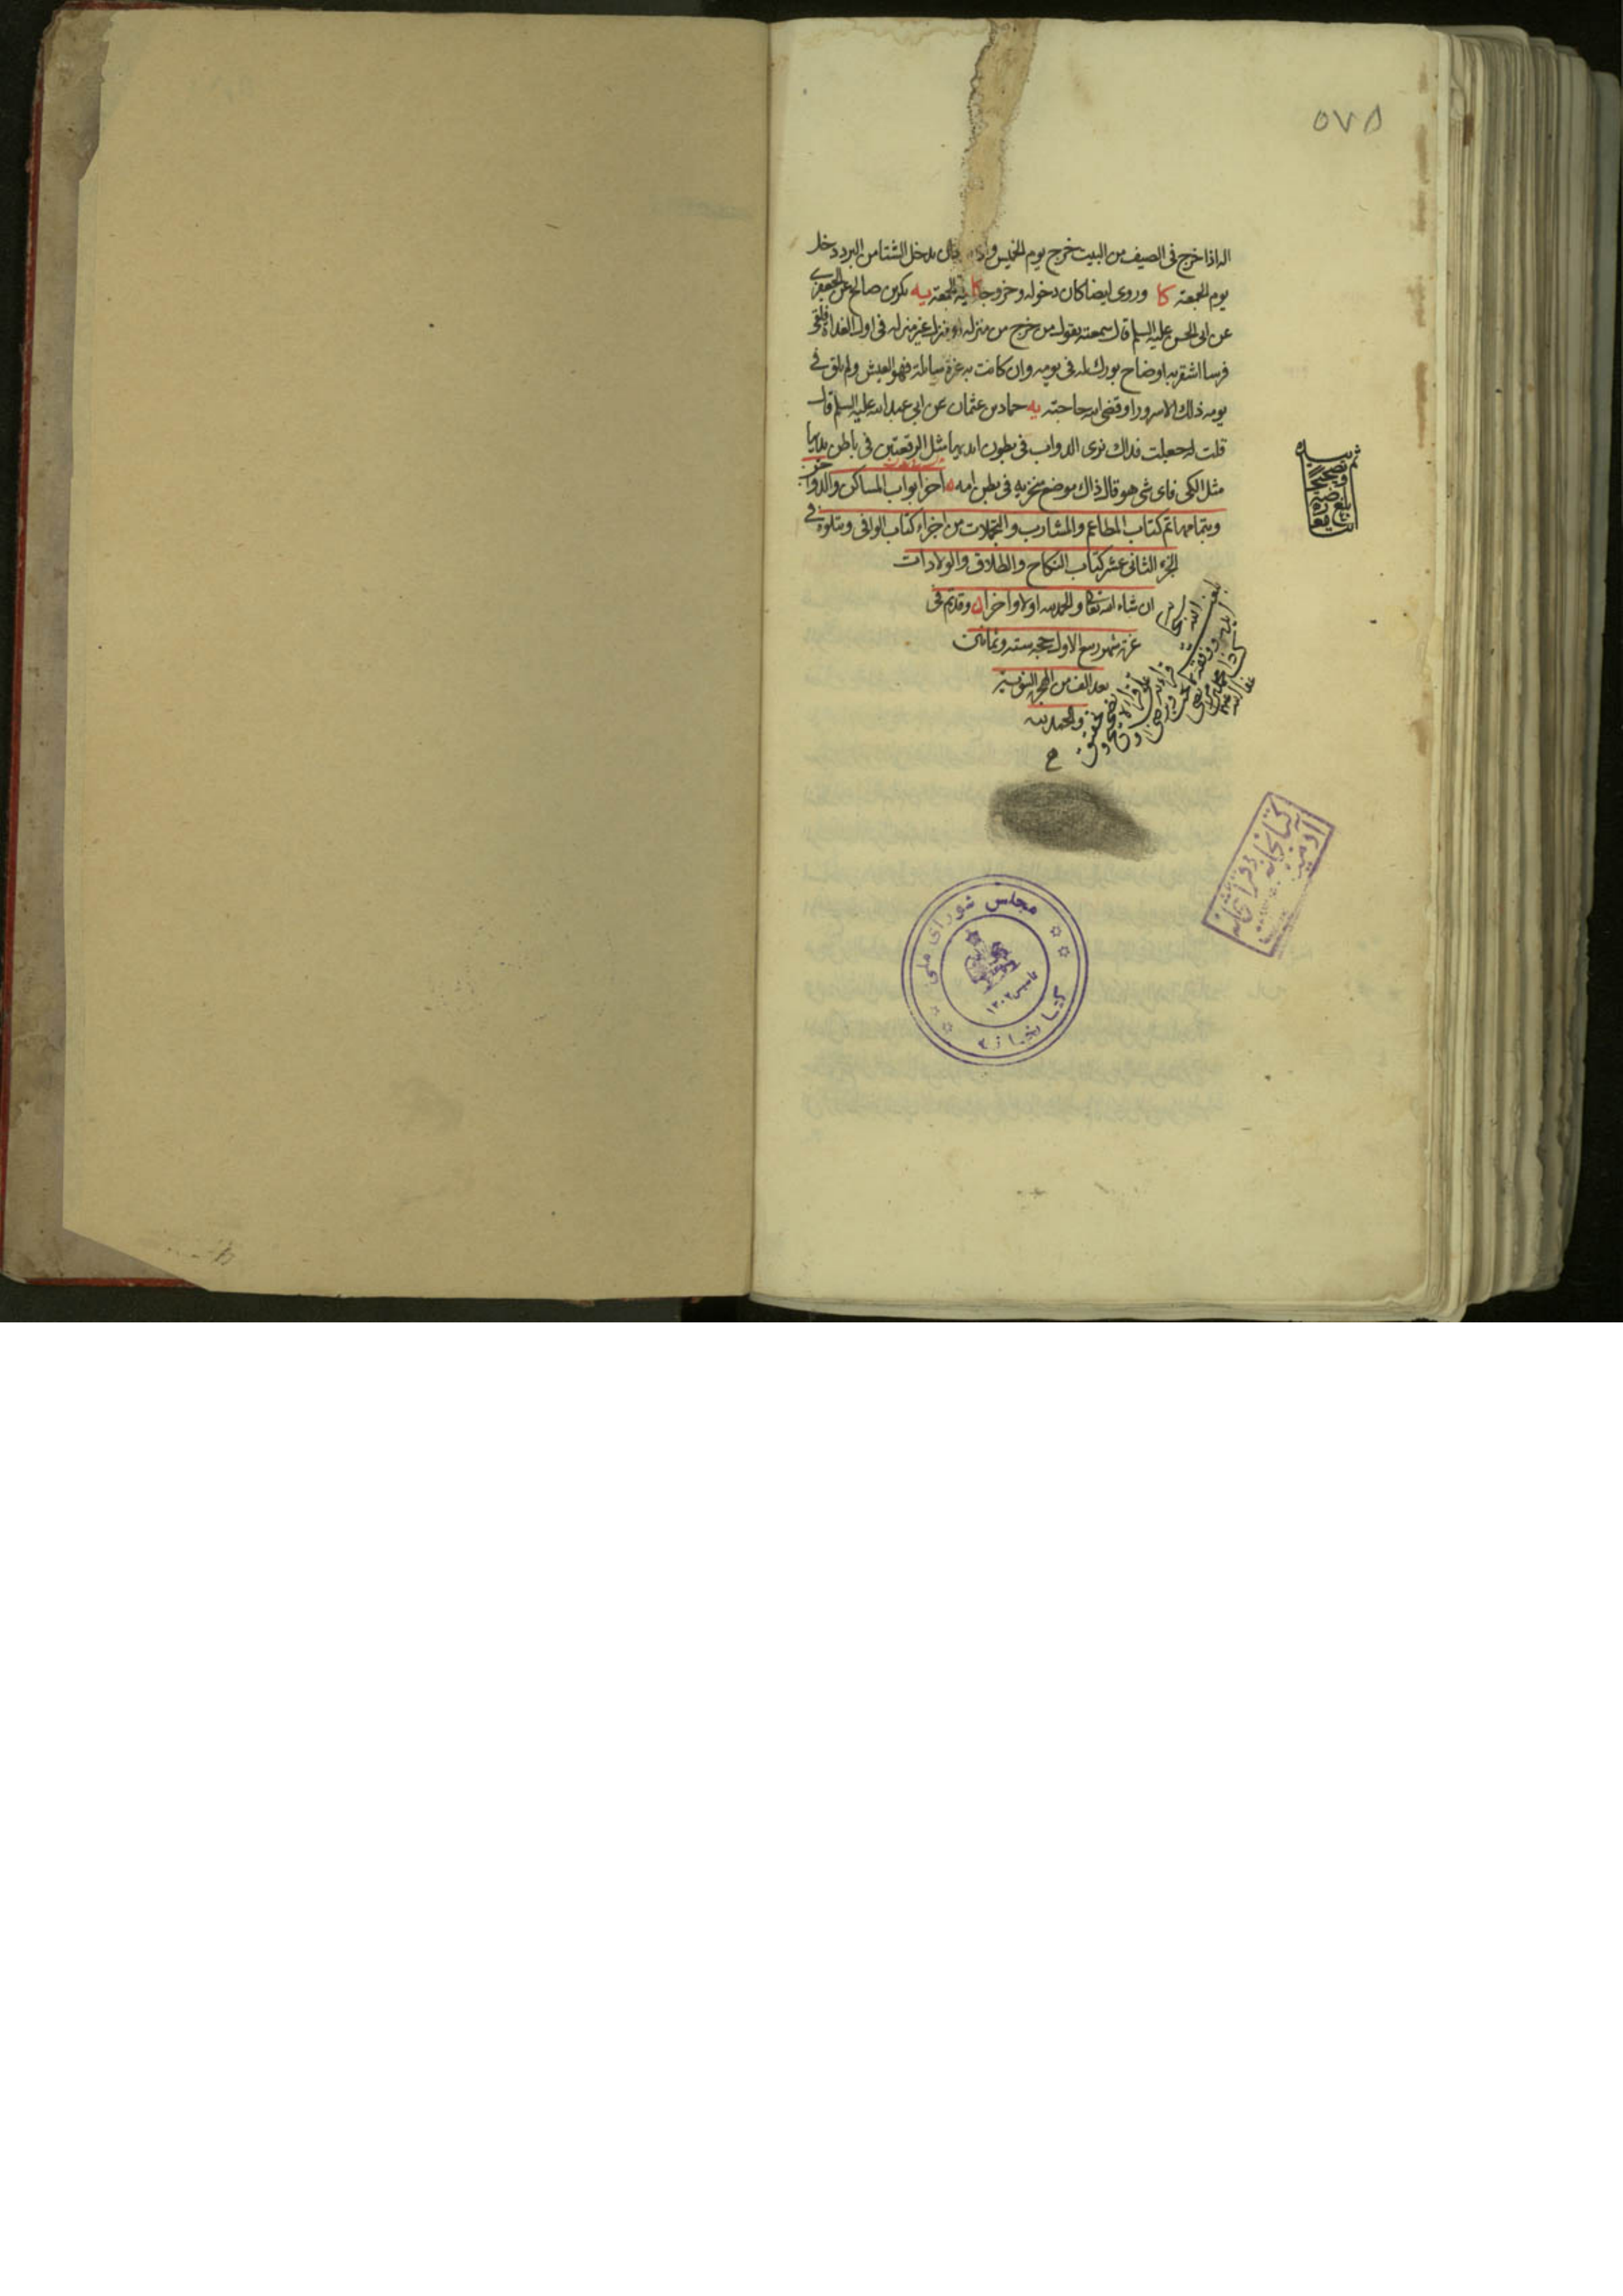 ٥٧٨
اله اذا خرج فى الصيف من البيت خرج يوم الخميس واذا قال يدخل الشتا من البرد دخل
يوم الجمعة كا وروى ايضا كان دخوله وخروجه ليلة الجمعة يه بكر بن صالح عن الجعفرى
عن ابى الحسن عليه السلم قال سمعته يقول من خرج من منزله او منزل غير منزله فى اول الغداة فلقى
فرسا اشقر به اوضاح بورك له فى يومه وان كانت به غرة سائلة فهو العيش ولم يلق فى
يومه ذلك الا سرورا وقضى الله حاجته يه حماد بن عثمان عن ابى عبد الله عليه السلم قال
قلت له جعلت فداك نرى الدواب فى بطون ايديها مثل الرقعتين فى باطن يديها
مثل الكى فاى شى هو قال ذاك موضع منخريه فى بطن امه اخر ابواب المساكن والدواب
وبتمامها تم كتاب المطاعم والمشارب والتجملات من اجزاء كتاب الوافى ويتلوه فى
الجزء الثانى عشر كتاب النكاح والطلاق والولادات
ان شاء الله تعالى والحمد لله اولا واخرا وقد تم فى
غرة شهر ربيع الاول حجة ستة وثمانين
بعد الف من الهجرة النبوية
والحمد لله
مجلس شورای ملی
کتابخانه
تاسیس ۱۳۰۲
کتابخانه
آدمیت